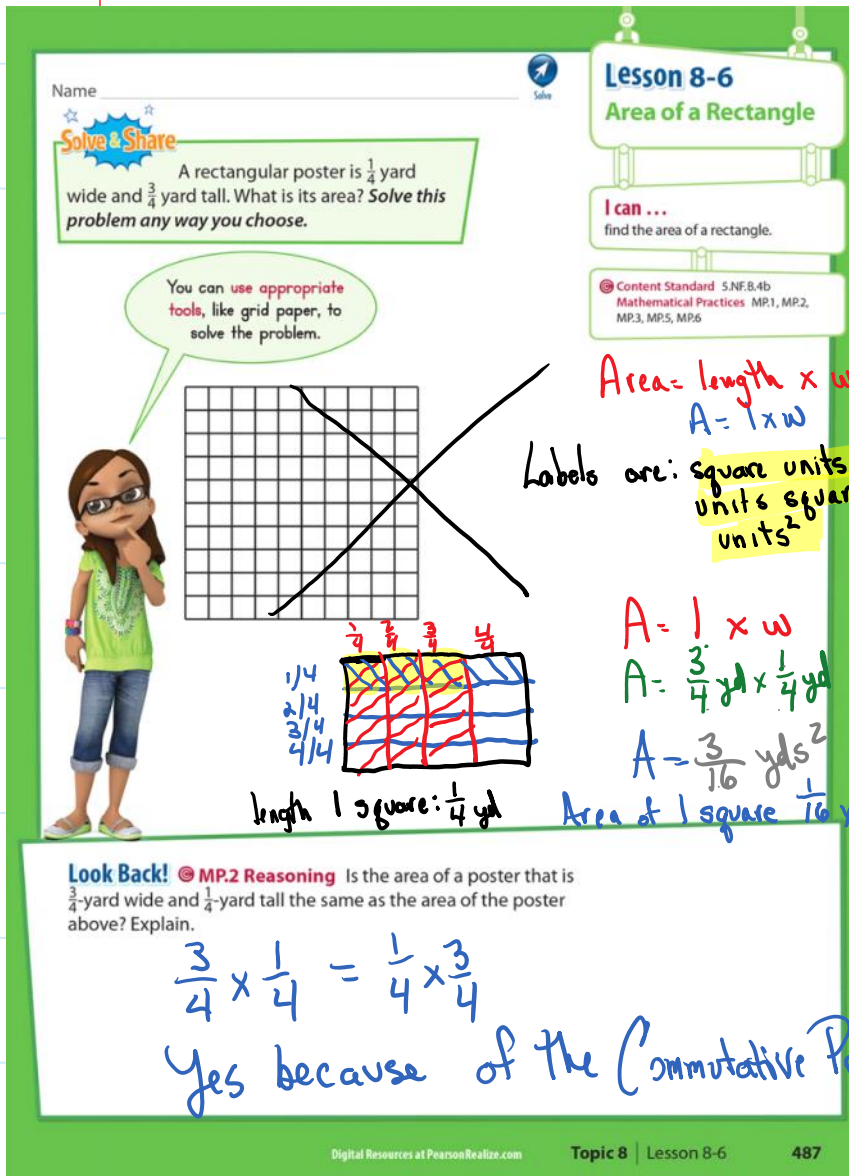 Name
Solve
Lesson 8-6
Area of a Rectangle
Solve & Share
A rectangular poster is 1/4 yard
wide and 3/4 yard tall. What is its area? Solve this
problem any way you choose.
I can ...
find the area of a rectangle.
Content Standard 5.NF.B.4b
Mathematical Practices MP.1, MP.2,
MP.3, MP.5, MP.6
You can use appropriate
tools, like grid paper, to
solve the problem.
Area = length x w
A = l x w
Labels are: square units
units squar
units²
1/4 2/4 3/4 4/4
1/4
2/4
3/4
4/4
length 1 square: 1/4 yd
A = l x w
A = 3/4 yd x 1/4 yd
A = 3/16 yds²
Area of 1 square 1/16 y
Look Back! MP.2 Reasoning Is the area of a poster that is
3/4-yard wide and 1/4-yard tall the same as the area of the poster
above? Explain.
3/4 x 1/4 = 1/4 x 3/4
Yes because of the Commutative P
Digital Resources at PearsonRealize.com Topic 8 | Lesson 8-6 487